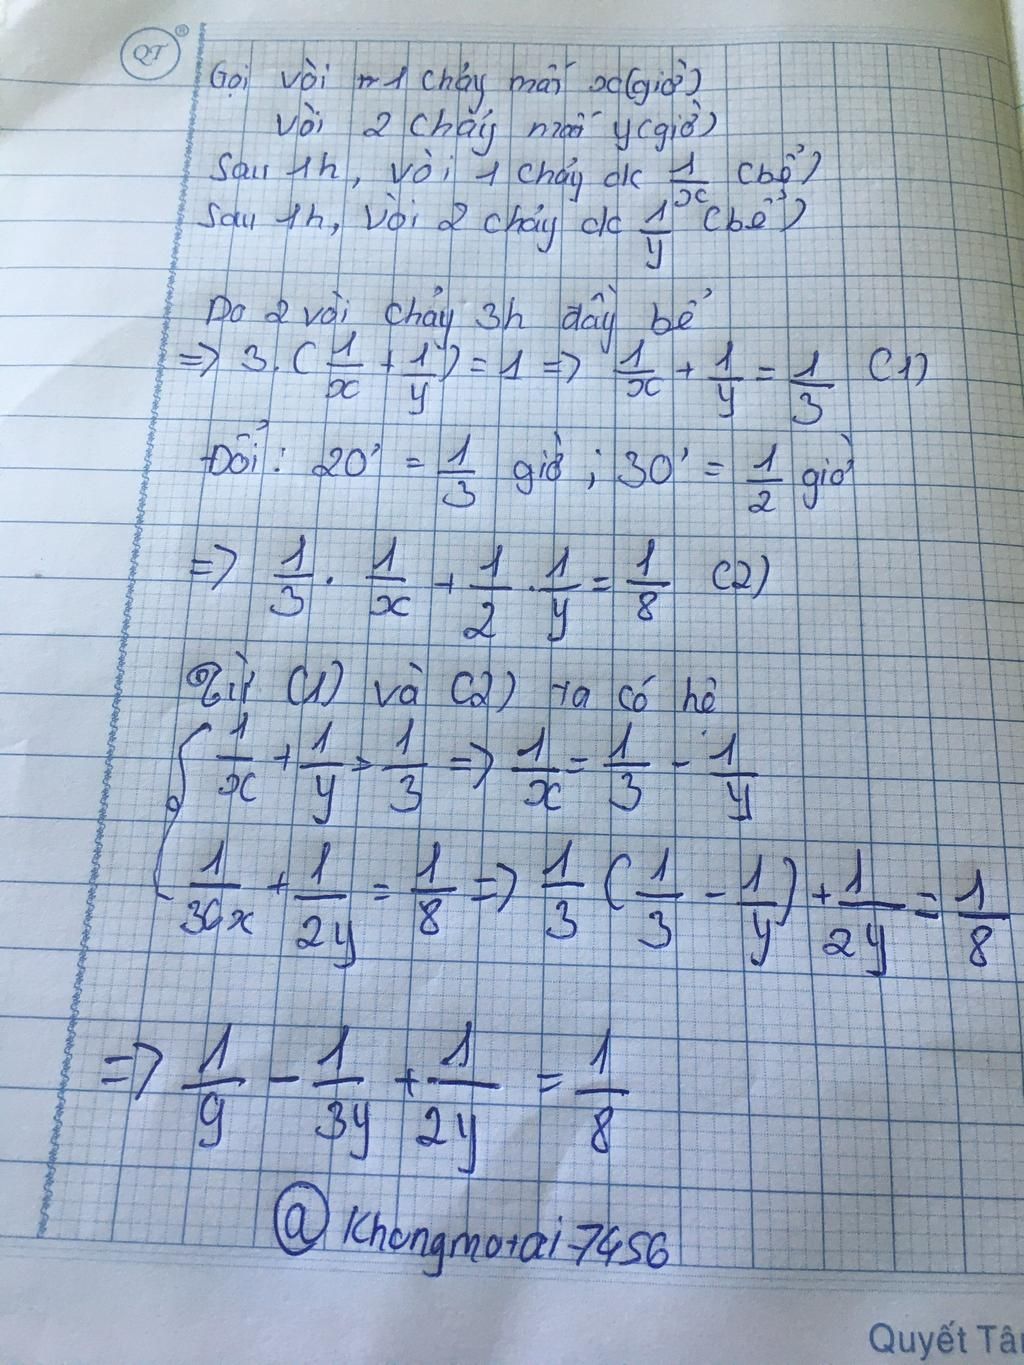 QT ®
Gọi vòi 1 chảy mất x(giờ)
vòi 2 chảy mất y(giờ)
Sau 1h, vòi 1 chảy đc 1/x (bể)
Sau 1h, vòi 2 chảy đc 1/y (bể)
Do 2 vòi chảy 3h đầy bể
=> 3.(1/x + 1/y) = 1 => 1/x + 1/y = 1/3 (1)
Đổi: 20' = 1/3 giờ; 30' = 1/2 giờ
=> 1/3 . 1/x + 1/2 . 1/y = 1/8 (2)
Từ (1) và (2) ta có hệ
{ 1/x + 1/y = 1/3 => 1/x = 1/3 - 1/y
1/3x + 1/2y = 1/8 => 1/3 (1/3 - 1/y) + 1/2y = 1/8
=> 1/9 - 1/3y + 1/2y = 1/8
@ Khongmotai7456
Quyết Tâ